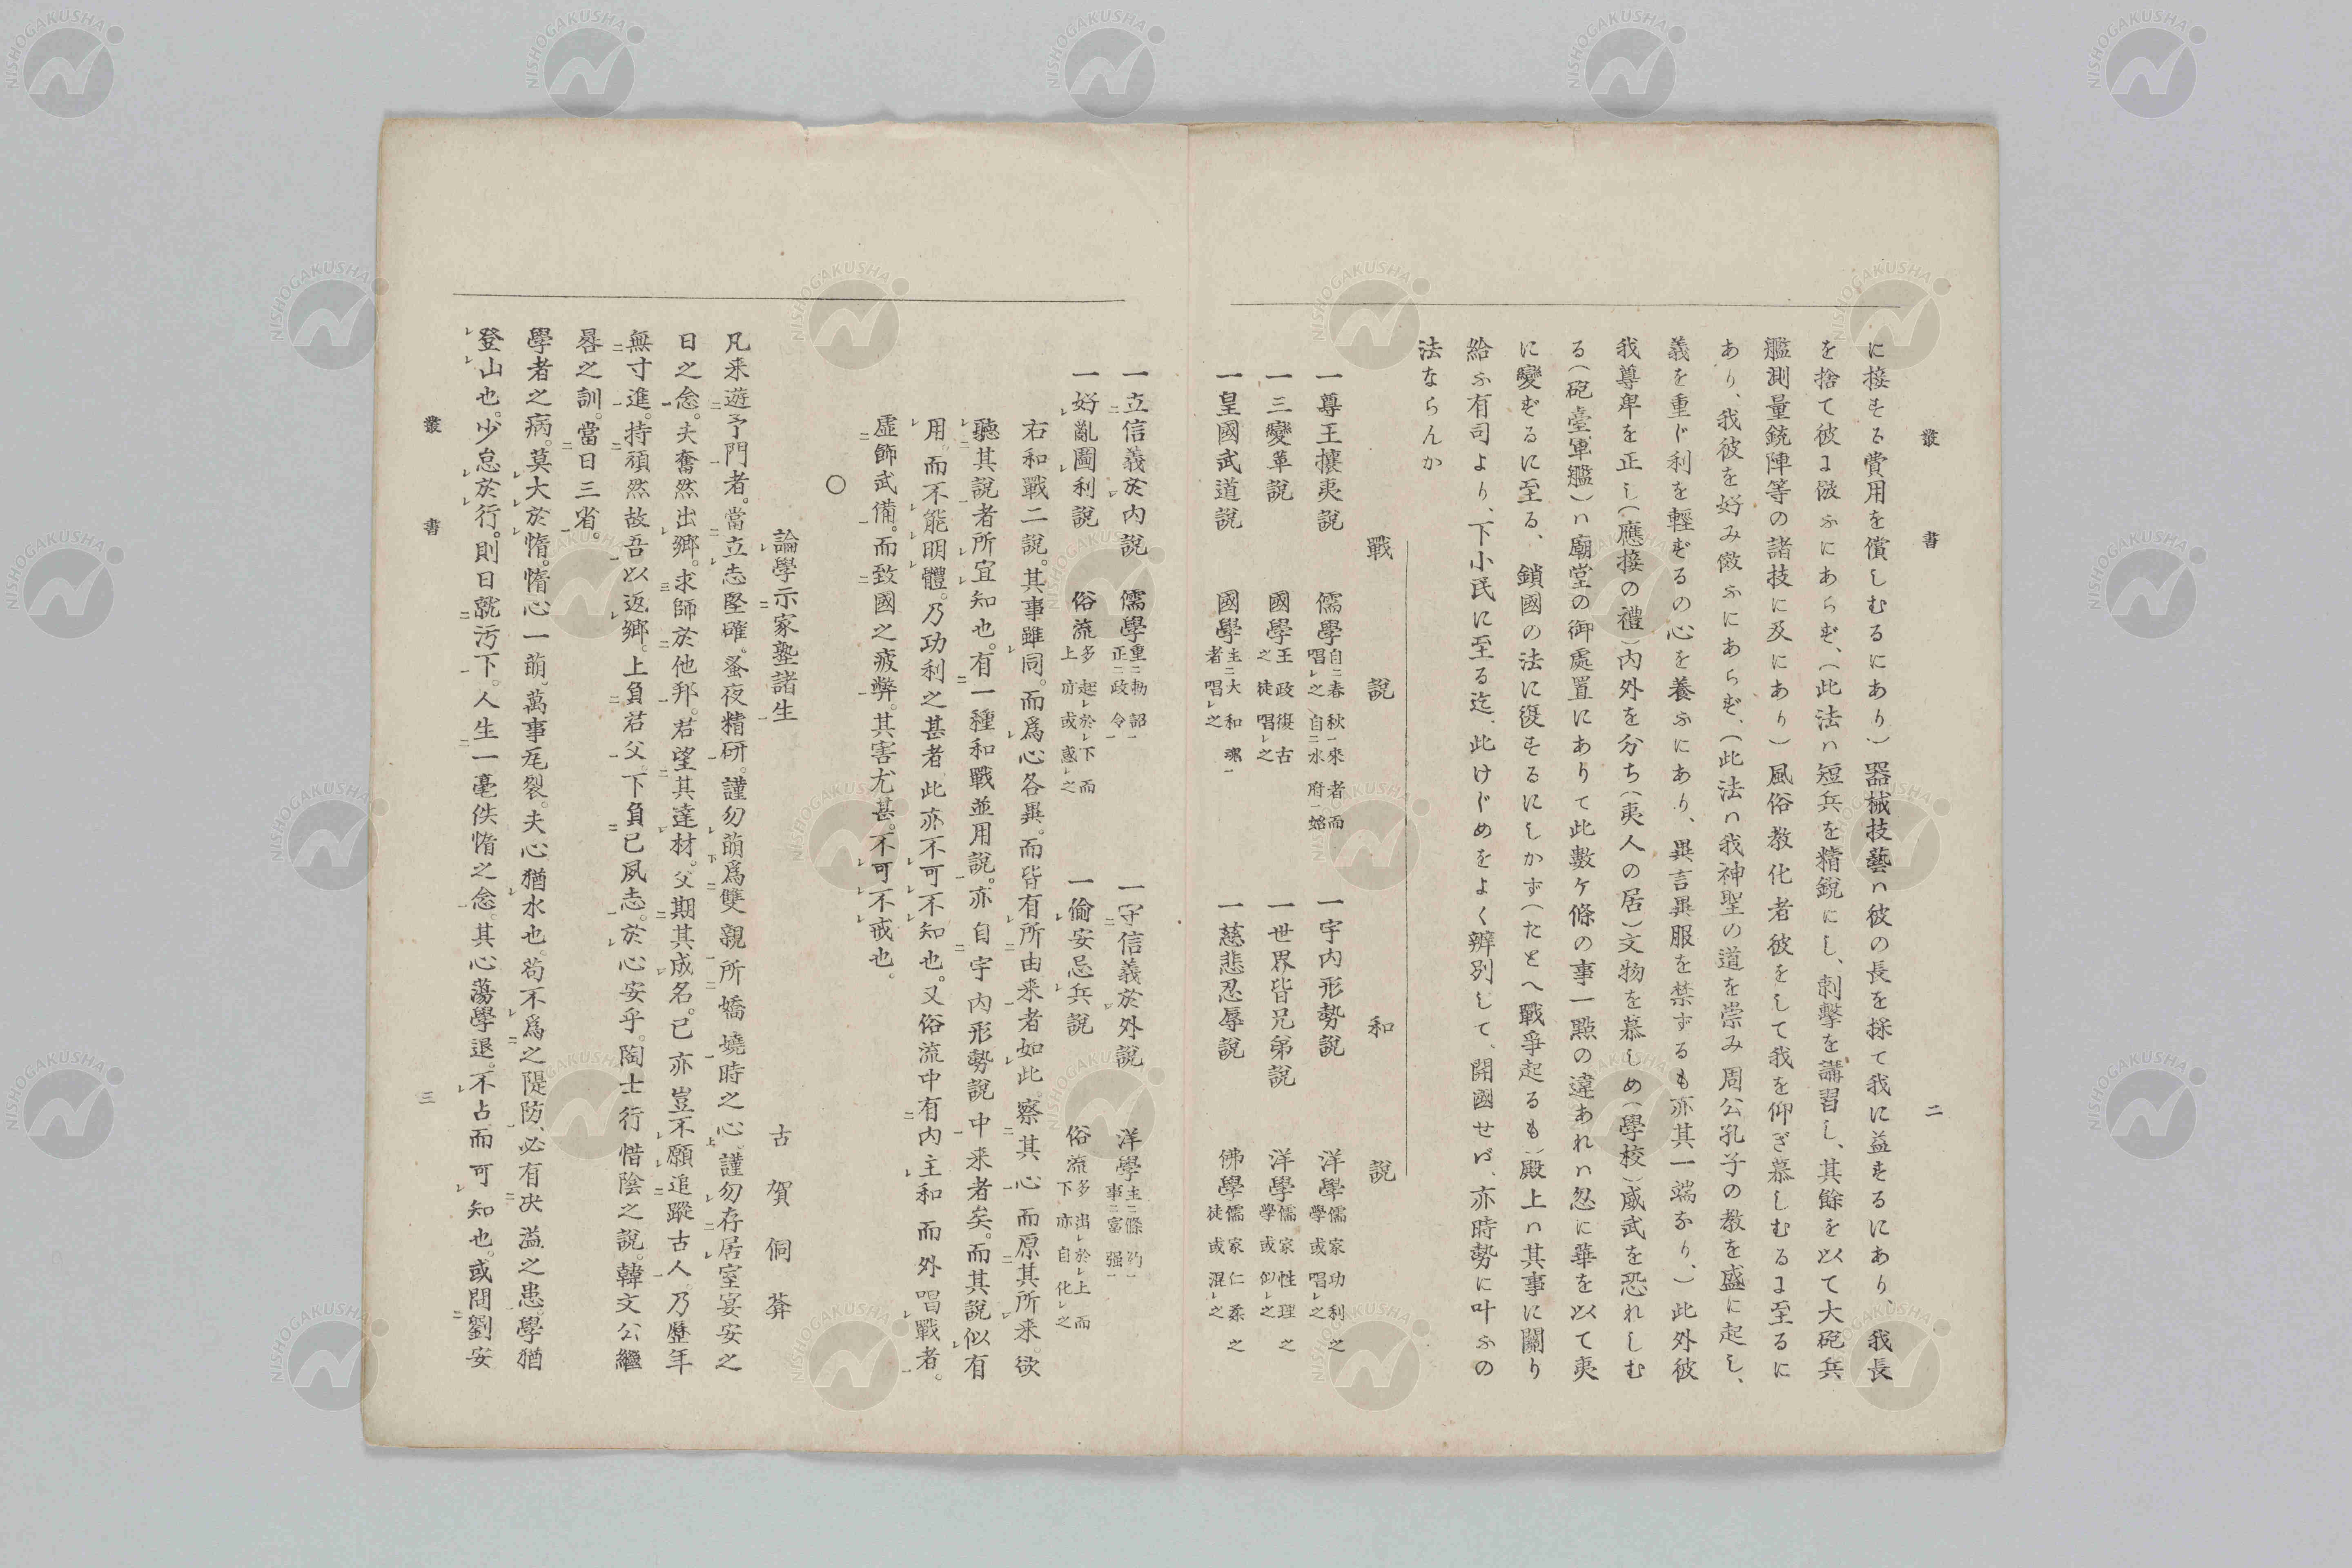 叢書 二
に接もる費用を償しむるにあり)器械技藝ハ彼の長を採て我に益もるにあり、我長
を捨て彼ま倣ふにあらず、(此法ハ短兵を精鋭にし、刺擊を講習し、其餘を以て大砲兵
艦測量銃陣等の諸技に及にあり)風俗教化者彼をして我を仰ぎ慕しむるま至るに
あり、我彼を好み傚ふにあらず、(此法ハ我神聖の道を崇み周公孔子の教を盛に起し、
義を重ド利を輕ずるの心を養ふにあり、異言異服を禁ずるも亦其一端なり、)此外彼
我尊卑を正し(應接の禮)內外を分ち(夷人の居)文物を慕しめ(學校)威武を恐れしむ
る(砲臺軍艦)ハ廟堂の御處置にありて此數ケ條の事一點の違あれハ忽に華を以て夷
に變ずるに至る、鎖國の法に復もるにしかず(たとへ戰爭起るも)殿上ハ其事に關り
給ふ有司より、下小民に至る迄、此けぢめをよく辨別して、開國せバ、亦時勢に叶ふの
法ならんか
戰說 和說
一尊王攘夷說 儒學自二春秋一來者而唱レ之自二水府一始 一宇內形勢說 洋學儒家功利之學或唱レ之
一三變革說 國學王政復古之徒唱レ之 一世界皆兄弟說 洋學儒家性理之學或似レ之
一皇國武道說 國學主二大和魂一者唱レ之 一慈悲忍辱說 佛學儒家仁柔之徒或混レ之
一立二信義於內一說 儒學重二勅詔一正二政令一 一守二信義於外一說 洋學主二條約一事二富强一
一好レ亂圖レ利說 俗流多起レ於レ下而上亦或惑レ之 一偷レ安忌レ兵說 俗流多出レ於レ上而下亦自化レ之
右和戰二說。其事雖レ同。而爲レ心各異。而皆有レ所二由來一者如レ此。察二其心一而原二其所一レ來。欲
レ聽二其說一者所レ宜レ知也。有二一種和戰並用說一。亦自二宇內形勢說中一來者矣。而其說似レ有
レ用。而不レ能レ明レ體。乃功利之甚者、此亦不レ可レ不レ知也。又俗流中有二內主レ和而外唱レ戰者一。
虛二飾武備一。而致二國之疲弊一。其害尤甚。不レ可レ不レ戒也。
○
論レ學示二家塾諸生一 古賀侗菴
凡來二遊予門一者。當二立レ志堅確。蚤夜精研一。謹勿レ萌下爲二雙親一所二嬌嬈一時之心上。謹勿レ存二居レ室宴安之
日之念一。夫奮然出レ鄉。求三師於二他邦一。君望二其達一レ材。父期二其成一レ名。己亦豈不レ願レ追二蹤古人一乃歷年
無二寸進一。持二頑然故吾一以返レ鄉。上負二君父一。下負二己夙志一。於レ心安乎。陶士行惜陰之說。韓文公繼
晷之訓。當二日三省一。
學者之病。莫レ大レ於レ惰。惰心一萌。萬事瓦裂。夫心猶レ水也。苟不レ爲二之隄防一、必有二決溢之患一。學猶
レ登レ山也。少怠レ於レ行。則日就二汚下一。人生二一毫佚惰之念一。其心蕩學退。不レ占而可レ知也。或問二劉安
叢書 三